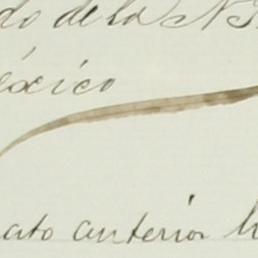 do de la N
éxico
ato anterior h